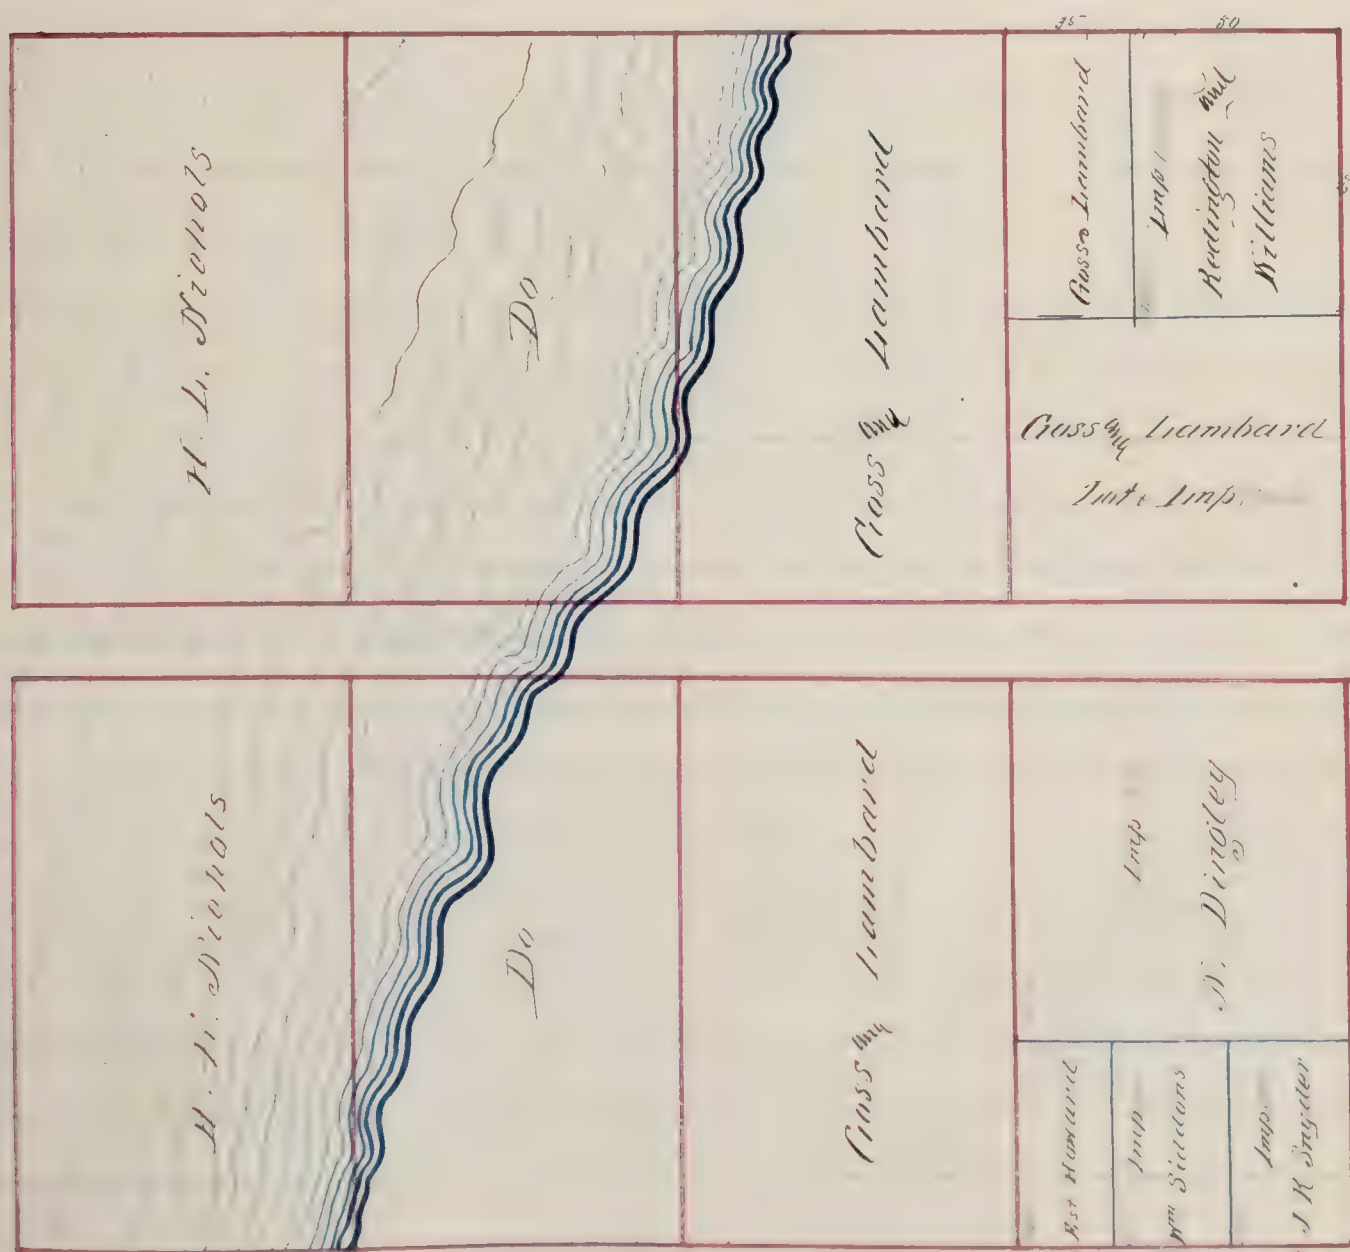 35
50
H. L. Nichols
Do
Goss and Lambard
Goss & Lambard
Imp.
Redington and
Williams
Goss and Lambard
Imp.
H. L. Nichols
Do
Goss and Lambard
Imp
N. Dingley
Est Howard
Imp
Wm Siddons
Imp.
J K Snyder